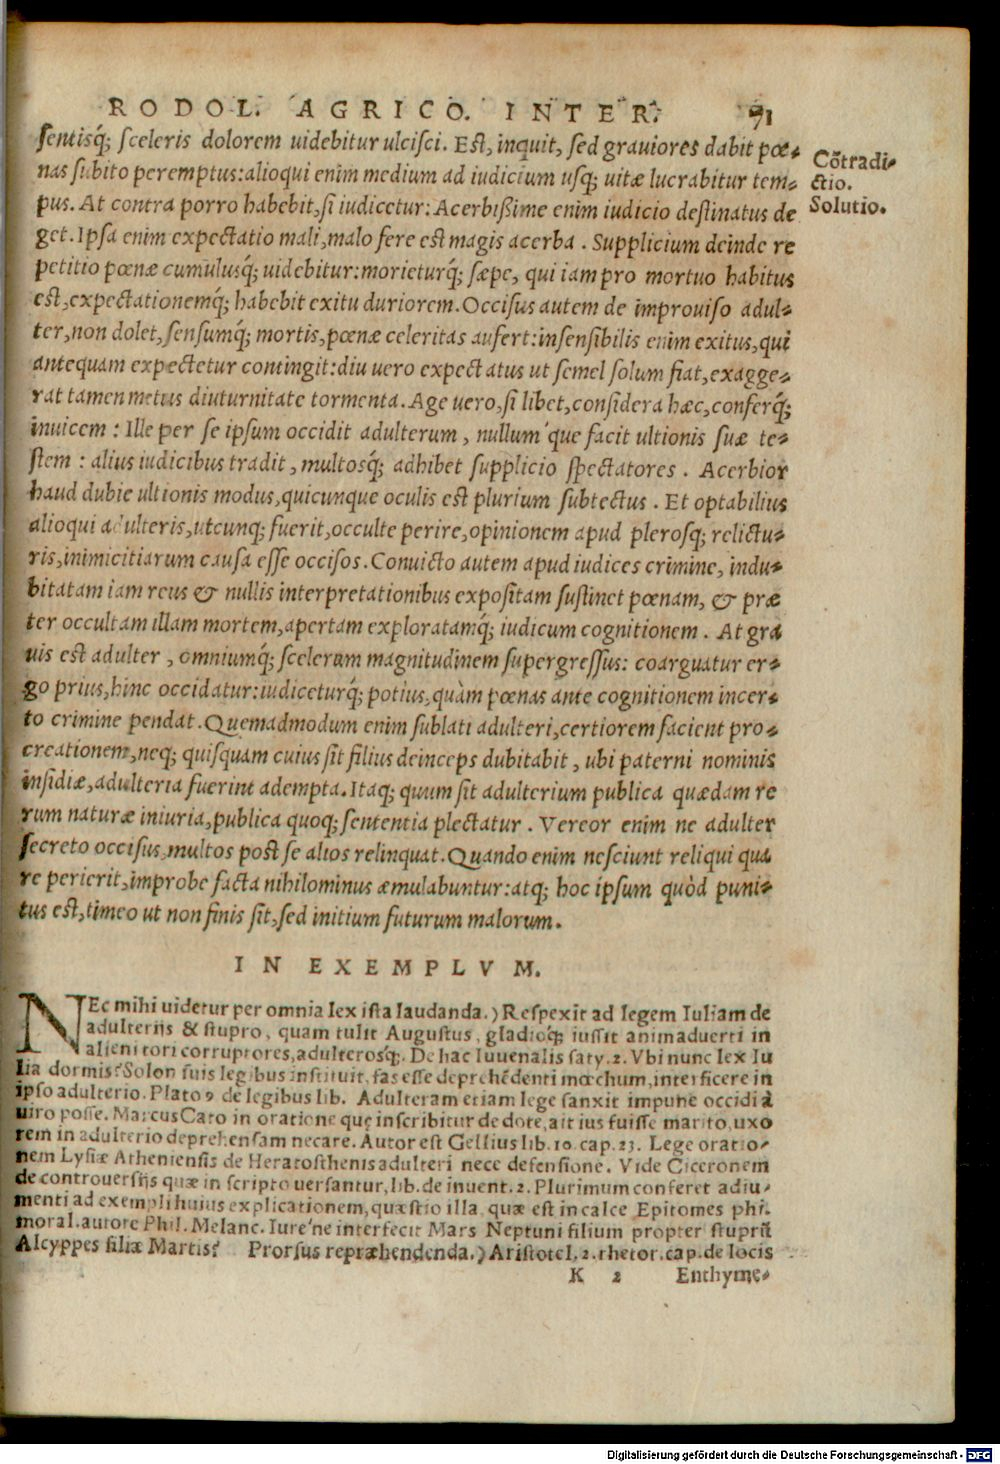 RODOL. AGRICO. INTER. 71
sentisq́; sceleris dolorem uidebitur ulcisci. Est, inquit, sed grauiores dabit pœ-
nas subito peremptus: alioqui enim medium ad iudicium usq; uitæ lucrabitur tem-
pus. At contra porro habebit, si iudicetur: Acerbißime enim iudicio destinatus de
get. Ipsa enim expectatio mali, malo fere est magis acerba. Supplicium deinde re
petitio pœnæ cumulusq́; uidebitur: morieturq́; sæpe, qui iam pro mortuo habitus
est, expectationemq́; habebit exitu duriorem. Occisus autem de improuiso adul-
ter, non dolet, sensumq́; mortis, pœnæ celeritas aufert: insensibilis enim exitus, qui
antequam expectetur contingit: diu uero expectatus ut semel solum fiat, exagge-
rat tamen metus diuturnitate tormenta. Age uero, si libet, considera hæc, conferq́;
inuicem: Ille per se ipsum occidit adulterum, nullum'que facit ultionis suæ te-
stem: alius iudicibus tradit, multosq́; adhibet supplicio spectatores. Acerbior
haud dubie ultionis modus, quicunque oculis est plurium subtectus. Et optabilius
alioqui adulteris, utcunq; fuerit, occulte perire, opinionem apud plerosq; relictu-
ris, inimicitiarum causa esse occisos. Conuicto autem apud iudices crimine, indu-
bitatam iam reus & nullis interpretationibus expositam sustinet pœnam, & præ
ter occultam illam mortem, apertam exploratamq́; iudicum cognitionem. At gra
uis est adulter, omniumq́; scelerum magnitudinem supergressus: coarguatur er-
go prius, hinc occidatur: iudiceturq́; potius, quàm pœnas ante cognitionem incer-
to crimine pendat. Quemadmodum enim sublati adulteri, certiorem facient pro-
creationem, neq; quisquam cuius sit filius deinceps dubitabit, ubi paterni nominis
insidiæ, adulteria fuerint adempta. Itaq; quum sit adulterium publica quædam re
rum naturæ iniuria, publica quoq; sententia plectatur. Vereor enim ne adulter
secreto occisus, multos post se alios relinquat. Quando enim nesciunt reliqui qua
re perierit, improbe facta nihilominus æmulabuntur: atq; hoc ipsum quòd puni-
tus est, timeo ut non finis sit, sed initium futurum malorum.
Cōtradi-
ctio.
Solutio.
IN EXEMPLVM.
NEc mihi uidetur per omnia lex ista laudanda.) Respexit ad legem Iuliam de
adulterijs & stupro, quam tulit Augustus, gladioq́; iussit animaduerti in
alieni tori corruptores, adulterosq́;. De hac Iuuenalis saty. 2. Vbi nunc lex Iu
lia dormis? Solon suis legibus instituit, fas esse deprehēdenti mœchum, interficere in
ipso adulterio. Plato 9 de legibus lib. Adulteram etiam lege sanxit impune occidi à
uiro posse. Marcus Cato in oratione quę inscribitur de dote, ait ius fuisse marito, uxo
rem in adulterio deprehensam necare. Autor est Gellius lib. 10. cap. 23. Lege oratio-
nem Lysiæ Atheniensis de Heratosthenis adulteri nece defensione. Vide Ciceronem
de controuersijs quæ in scripto uersantur, lib. de inuent. 2. Plurimum conferet adiu-
menti ad exempli huius explicationem, quæstio illa quæ est in calce Epitomes phi.
moral. autore Phil. Melanc. Iure'ne interfecit Mars Neptuni filium propter stuprū
Alcyppes filiæ Martis? Prorsus repræhendenda.) Aristotel. 2. rhetor. cap. de locis
K 2 Enthyme-
Digitalisierung gefördert durch die Deutsche Forschungsgemeinschaft - DFG